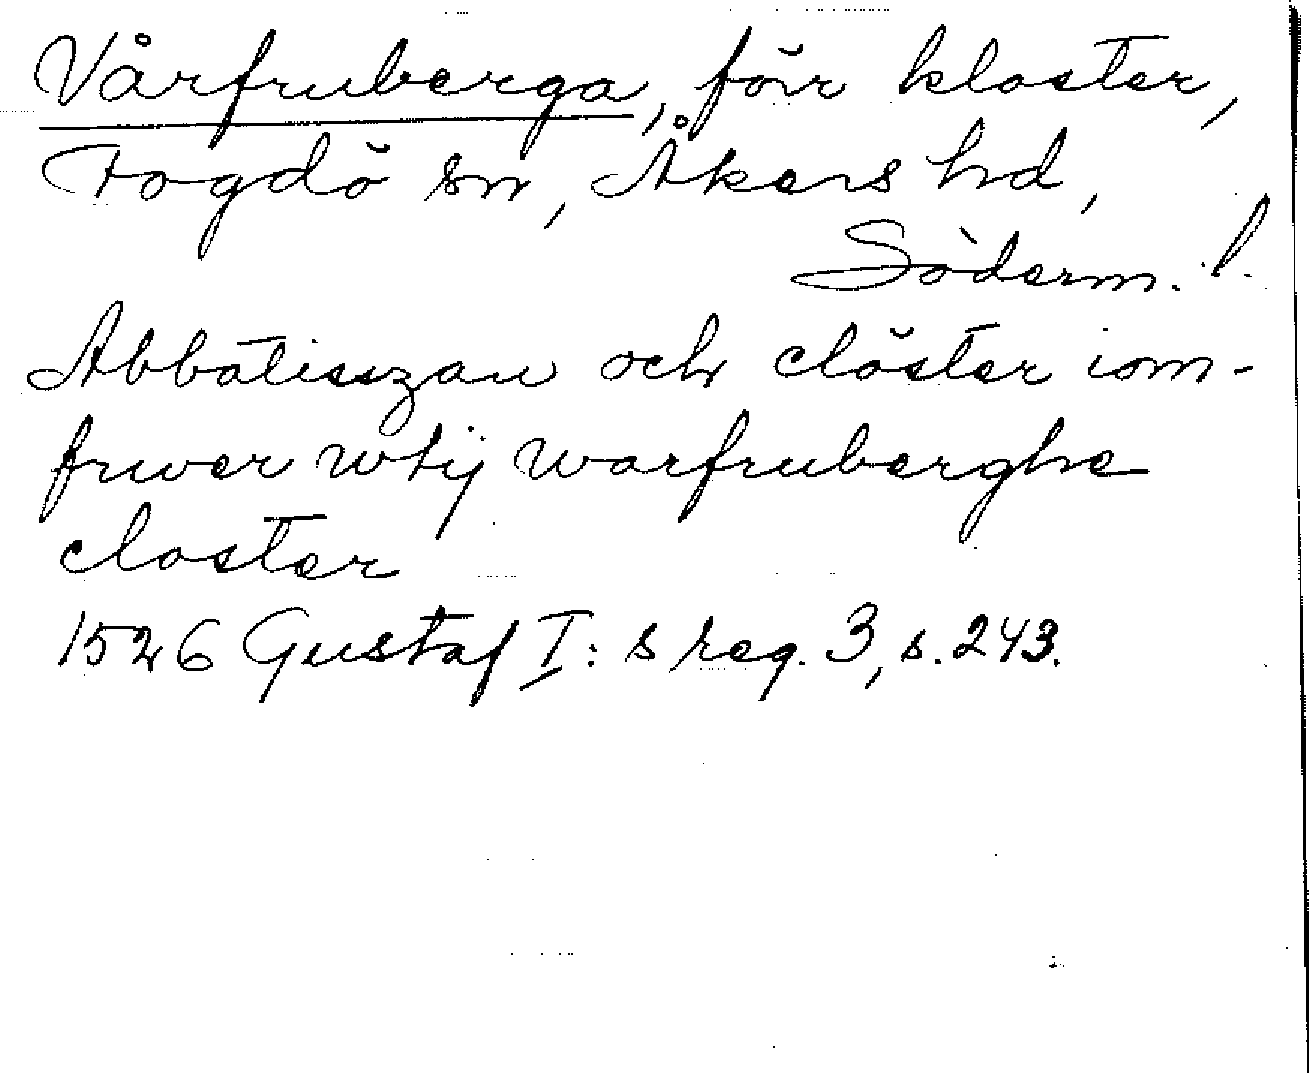 Vårfruberga, förr kloster,
Fogdö sn, Åkers hd,
Söderm. l.
Abbatisszan och clöster iom-
fruer wtij warfruberghe
closter
1526 Gustaf I:s reg. 3, s. 243.